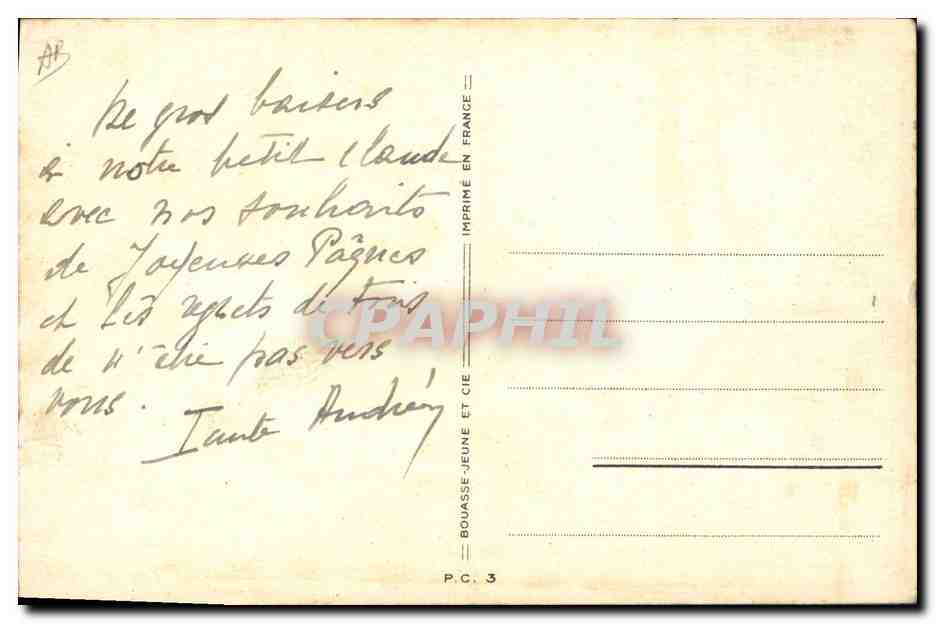 AB
De gros baisers
à notre petit Claude
avec nos souhaits
de Joyeuses Pâques
et les regrets de tous
de n'être pas vers
vous.
Tante Andrée
BOUASSE-JEUNE ET CIE
IMPRIMÉ EN FRANCE
P.C. 3
CPAPHIL